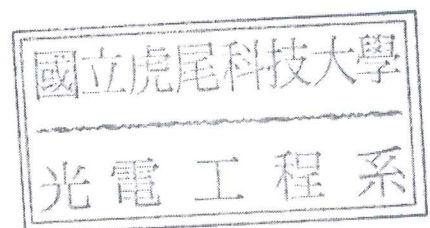 國立虎尾科技大學
光電工程系